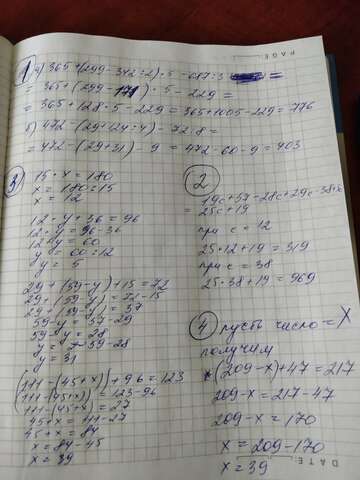 PAGE
DATE
1 а) 365+(299-342:2)·5-687:3 =
= 365+(299-171)·5-229 =
= 365+128·5-229=365+1005-229=776
б) 472-(29+124:4)-72:8=
= 472-(29+31)-9=472-60-9=403
3
15·x=180
x=180:15
x=12
12·y+36=96
12·y=96-36
12·y=60
y=60:12
y=5
29+(59-y)+15=72
29+(59-y)=72-15
29+(59-y)=57
59-y=57-29
59-y=28
y=59-28
y=31
(111-(45+x))+96=123
111-(45+x)=123-96
111-(45+x)=27
45+x=111-27
45+x=84
x=84-45
x=39
2
=25c+19
при c=12
25·12+19=319
при c=38
25·38+19=969
4 пусть число = X
получим
(209-x)+47=217
209-x=217-47
209-x=170
x=209-170
x=39